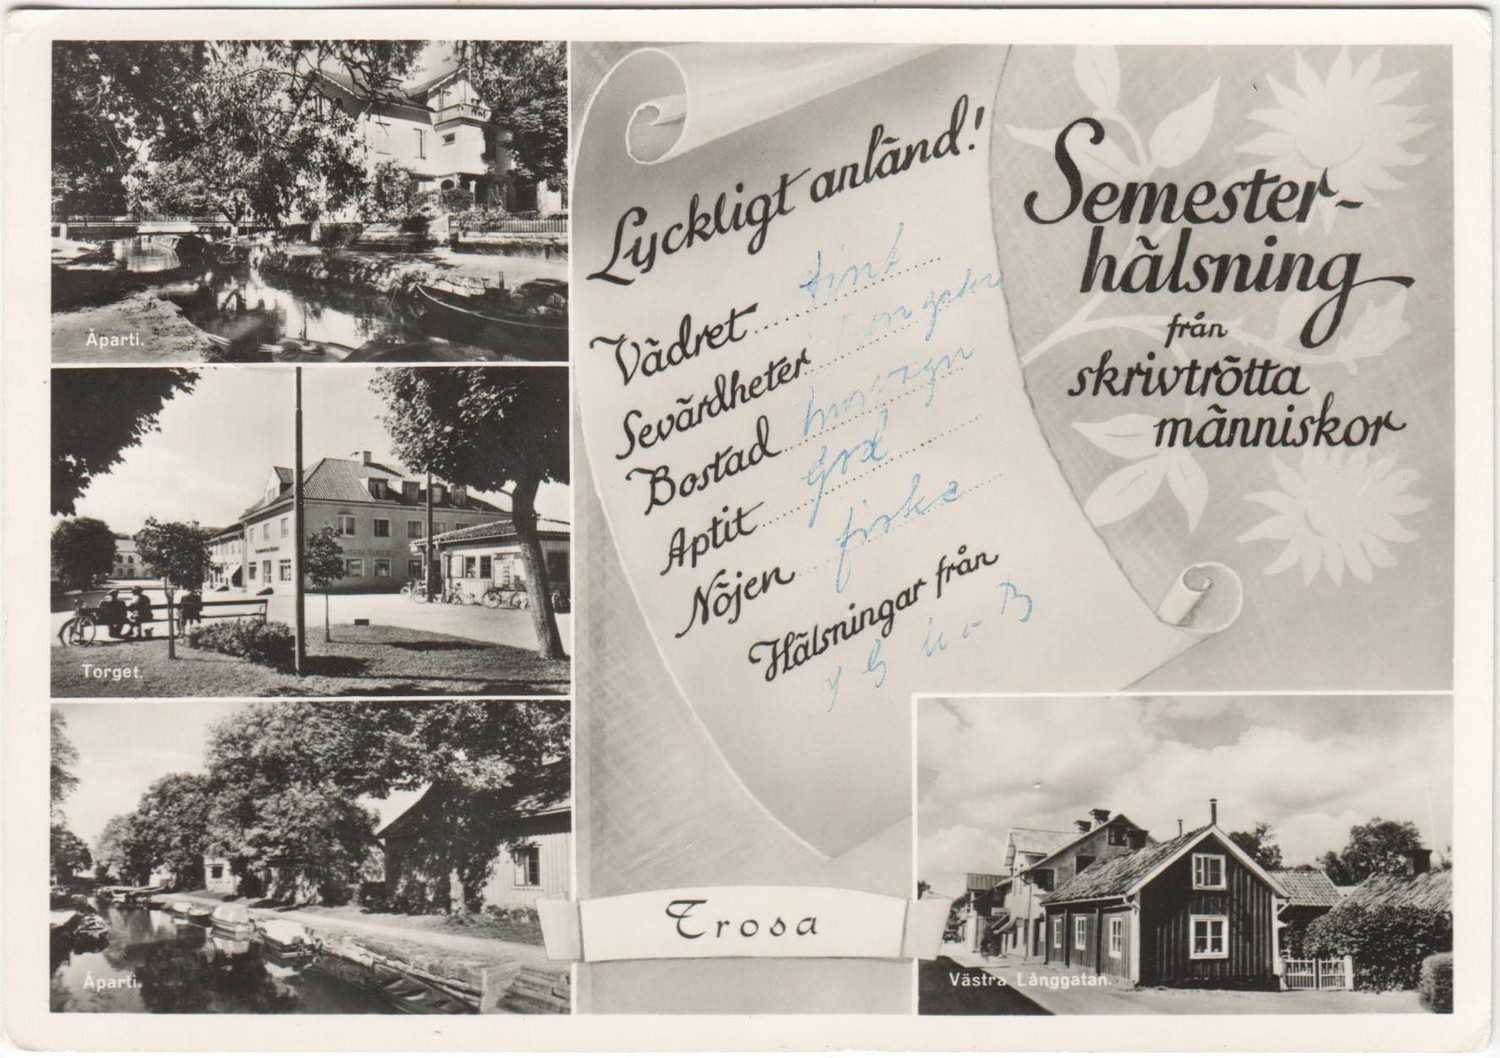 Åparti.
Torget.
Åparti.
Lyckligt anländ!
Vädret fint
Sevärdheter
Bostad husvagn
Aptit god
Nöjen fiske
Hälsningar från
Semester-
hälsning
från
skrivtrötta
människor
Trosa
Västra Långgatan.